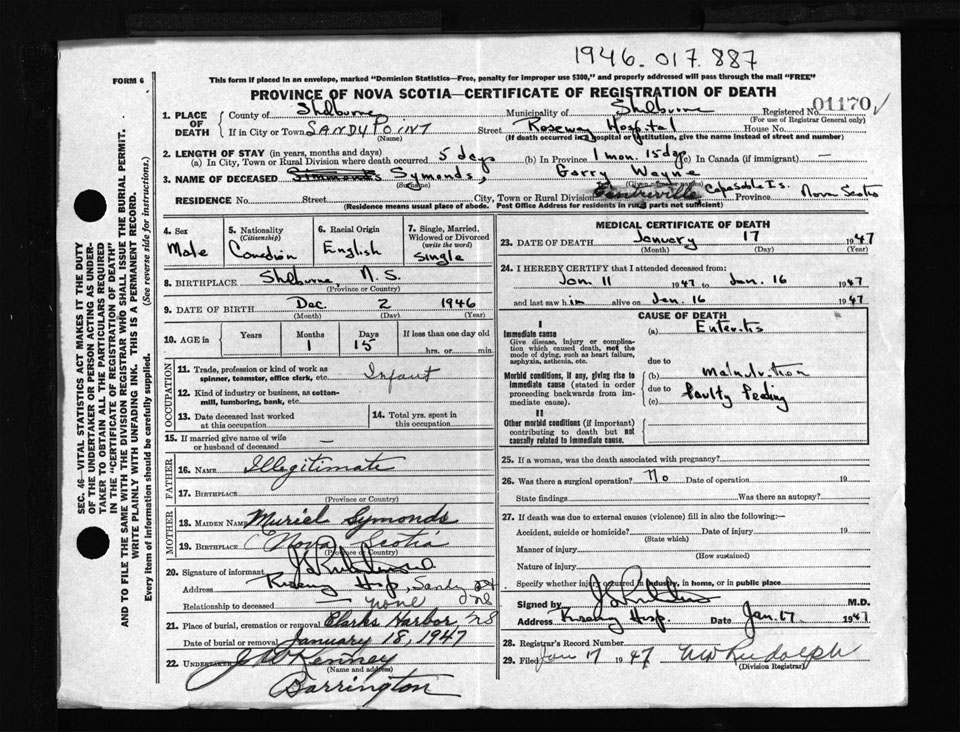 1946.017.887
FORM 6
This form if placed in an envelope, marked "Dominion Statistics—Free, penalty for improper use $300," and properly addressed will pass through the mail "FREE"
PROVINCE OF NOVA SCOTIA—CERTIFICATE OF REGISTRATION OF DEATH
1. PLACE OF DEATH County of Shelburne Municipality of Shelburne Registered No. 01170
(For use of Registrar General only)
If in City or Town SANDY POINT Street Roseway Hospital House No.
(Name) (If death occurred in a hospital or institution, give the name instead of street and number)
2. LENGTH OF STAY (in years, months and days)
(a) In City, Town or Rural Division where death occurred 5 days (b) In Province 1 mon. 15 days (c) In Canada (if immigrant) —
3. NAME OF DECEASED Simmonds Symonds, Garry Wayne
(Surname) (Given or christian names)
RESIDENCE No. Street City, Town or Rural Division Centreville Cape Sable Is. Province Nova Scotia
(Residence means usual place of abode. Post Office Address for residents in rural parts not sufficient)
4. Sex Male
5. Nationality (Citizenship) Canadian
6. Racial Origin English
7. Single, Married, Widowed or Divorced (write the word) Single
8. BIRTHPLACE Shelburne, N.S.
(Province or Country)
9. DATE OF BIRTH Dec. 2 1946
(Month) (Day) (Year)
10. AGE in Years Months 1 Days 15 If less than one day old hrs. or min.
OCCUPATION
11. Trade, profession or kind of work as spinner, teamster, office clerk, etc. Infant
12. Kind of industry or business, as cotton-mill, lumbering, bank, etc.
13. Date deceased last worked at this occupation
14. Total yrs. spent in this occupation
15. If married give name of wife or husband of deceased —
FATHER
16. NAME Illegitimate
17. BIRTHPLACE
(Province or Country)
MOTHER
18. MAIDEN NAME Muriel Symonds
19. BIRTHPLACE Nova Scotia
(Province or Country)
20. Signature of informant
Address Roseway Hosp., Sandy Pt
Relationship to deceased — none NS
21. Place of burial, cremation or removal Clarks Harbor, NS
Date of burial or removal January 18, 1947
22. UNDERTAKER J W Kenney
(Name and address)
Barrington
MEDICAL CERTIFICATE OF DEATH
23. DATE OF DEATH January 17 1947
(Month) (Day) (Year)
24. I HEREBY CERTIFY that I attended deceased from:
Jan 11 1947 to Jan. 16 1947
and last saw him alive on Jan. 16 1947
CAUSE OF DEATH
I
Immediate cause
Give disease, injury or complication which caused death, not the mode of dying, such as heart failure, asphyxia, asthenia, etc.
(a) Enteritis
due to
Morbid conditions, if any, giving rise to immediate cause (stated in order proceeding backwards from immediate cause).
(b) Malnutrition
due to
(c) Faulty Feeding
II
Other morbid conditions (if important) contributing to death but not causally related to immediate cause.
25. If a woman, was the death associated with pregnancy?
26. Was there a surgical operation? No Date of operation 19
State findings Was there an autopsy?
27. If death was due to external causes (violence) fill in also the following:—
Accident, suicide or homicide? Date of injury 19
(State which)
Manner of injury
(How sustained)
Nature of injury
Specify whether injury occurred in industry, in home, or in public place
Signed by M.D.
Address Roseway Hosp. Date Jan. 17 1947
28. Registrar's Record Number
29. Filed Jan 17 1947 Rudolph
(Division Registrar)
SEC. 46—VITAL STATISTICS ACT MAKES IT THE DUTY
OF THE UNDERTAKER OR PERSON ACTING AS UNDER-
TAKER TO OBTAIN ALL THE PARTICULARS REQUIRED
IN THE "CERTIFICATE OF REGISTRATION OF DEATH"
AND TO FILE THE SAME WITH THE DIVISION REGISTRAR WHO SHALL ISSUE THE BURIAL PERMIT.
WRITE PLAINLY WITH UNFADING INK. THIS IS A PERMANENT RECORD.
Every item of information should be carefully supplied. (See reverse side for instructions.)